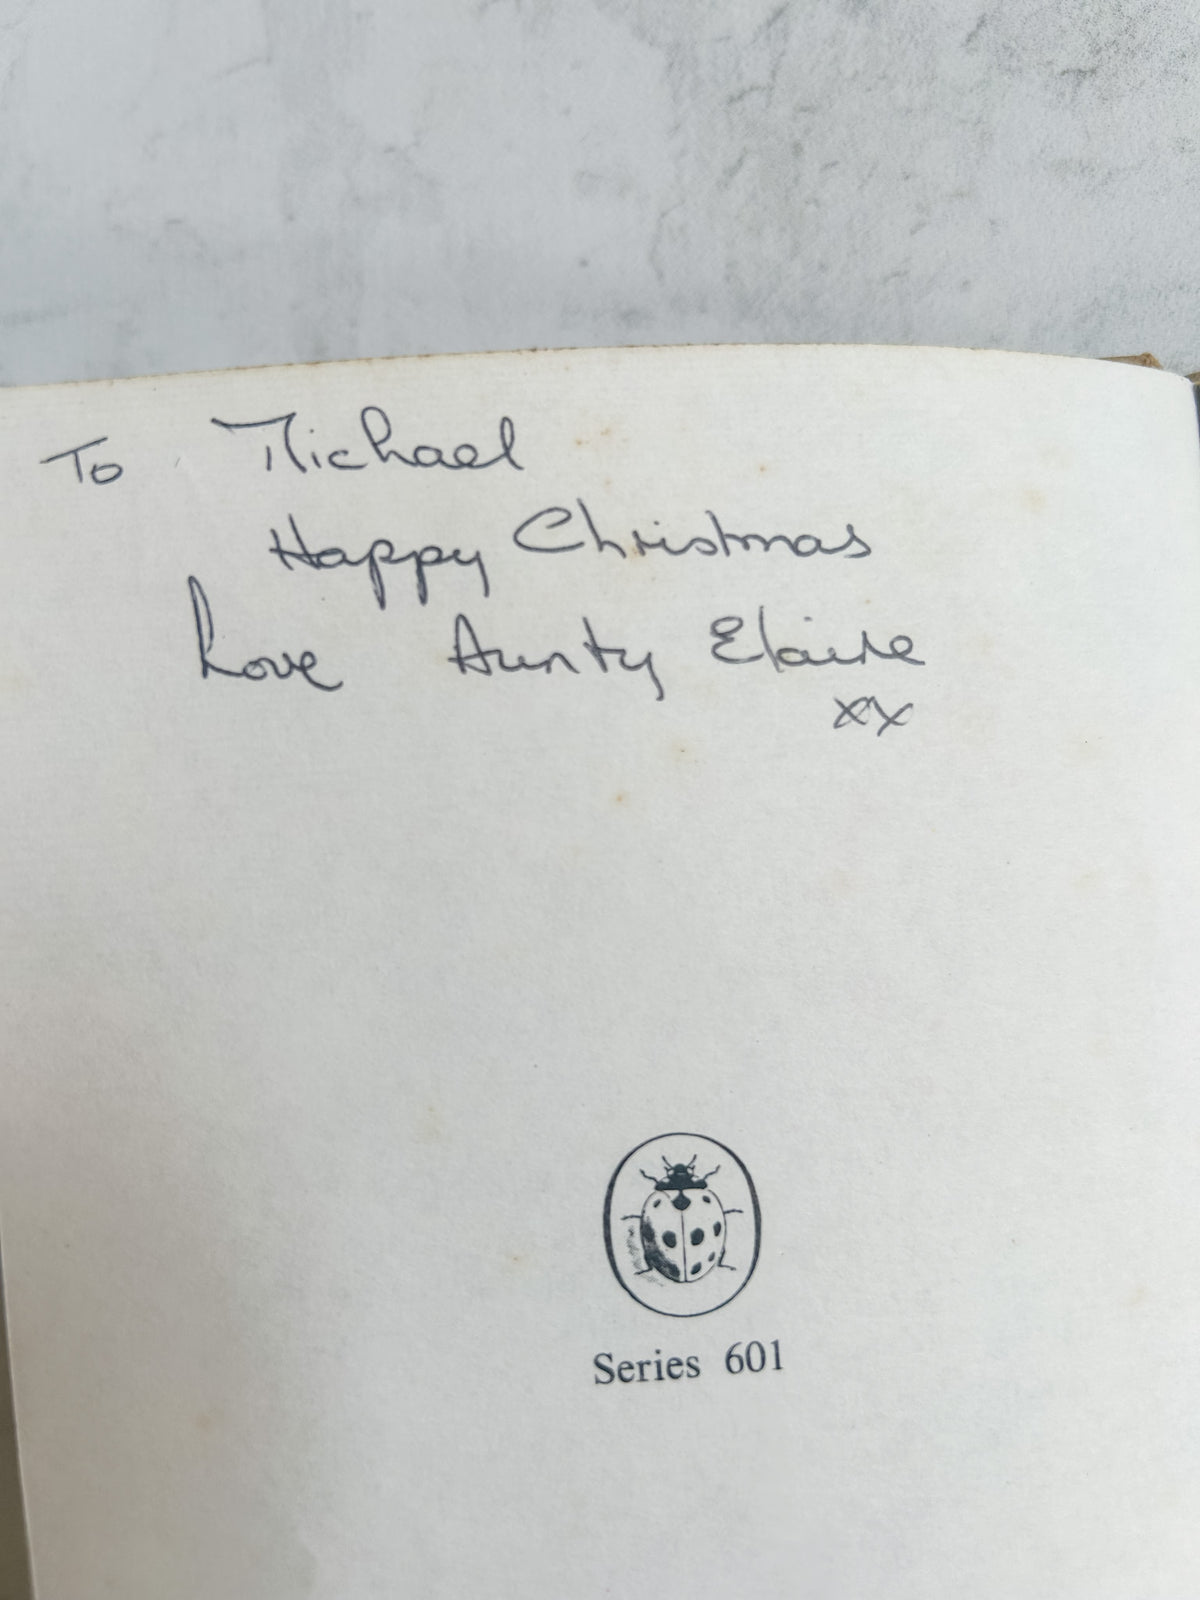 To Michael
Happy Christmas
Love Aunty Elaine
xx
Series 601